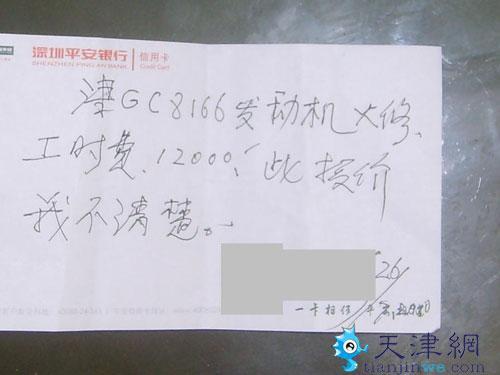 深圳平安银行 信用卡
SHENZHEN PING AN BANK Credit Card
津GC8166发动机大修、
工时费、12000、此报价
我不清楚。
26
一卡相伴 平安相随
天津網
tianjinwe.com